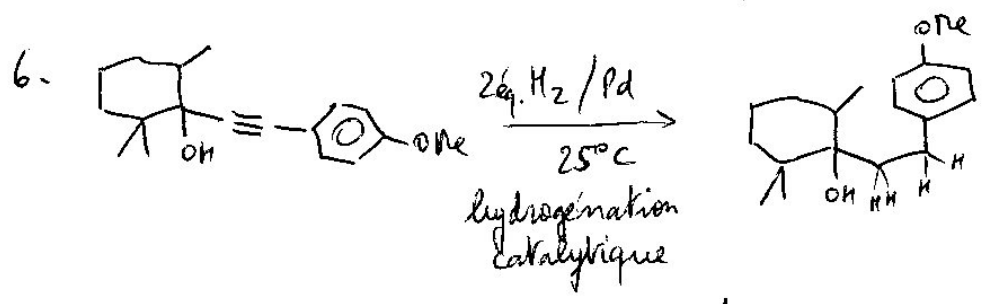 6.
OH
≡
OMe
2éq. H2 / Pd
25°C
hydrogénation
catalytique
OMe
OH
H H
H
H